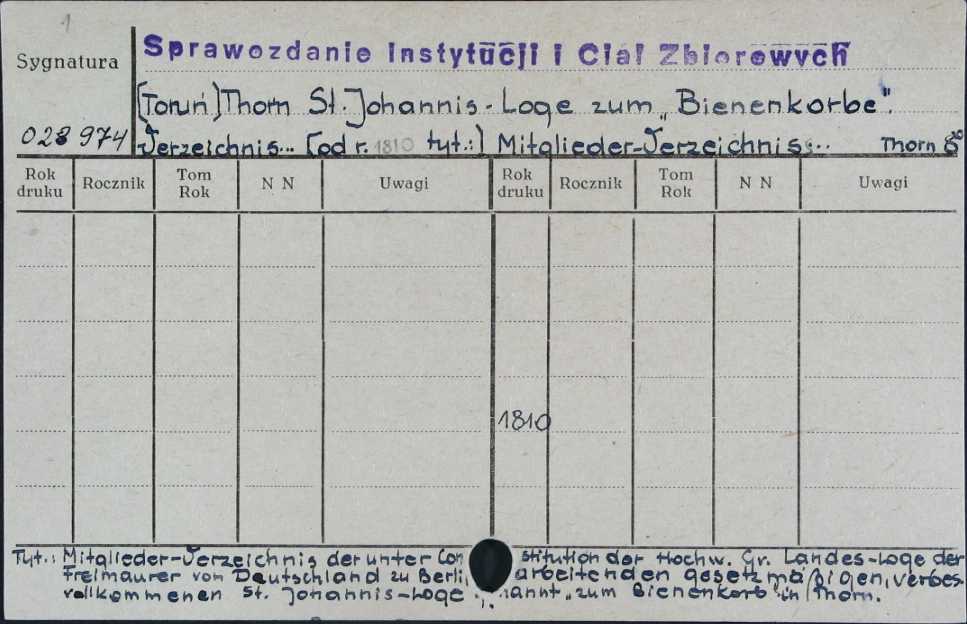 1
Sprawozdanie Instytucji i Ciał Zbiorowych
Sygnatura
[Toruń] Thorn St. Johannis-Loge zum „Bienenkorbe".
028974
Verzeichnis... [od r. 1810 tyt.:] Mitglieder-Verzeichnis... Thorn 8°
Rok druku Rocznik Tom Rok N N Uwagi Rok druku Rocznik Tom Rok N N Uwagi
1810
Tyt.: Mitglieder-Verzeichnis der unter Con stitution der Hochw. Gr. Landes-Loge der
Freimaurer von Deutschland zu Berli, arbeitenden gesetzmäßigen, verbes-
vollkommenen St. Johannis-Loge annt „zum Bienenkorb" in Thorn.